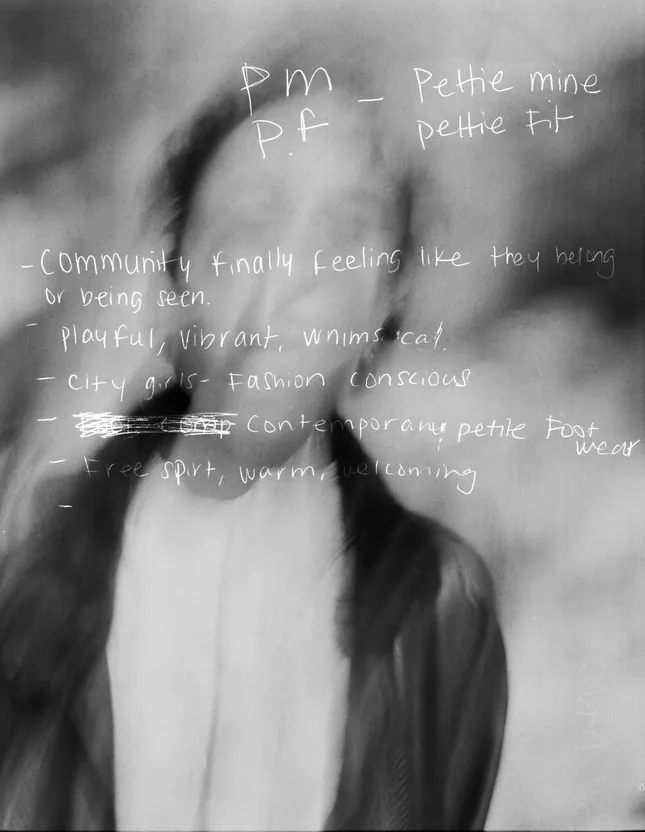 PM - Pettie mine
P.F pettie Fit
- Community finally feeling like they belong
or being seen.
- playful, vibrant, whimsical.
- City girls - Fashion conscious
- Contemporary petite Foot
wear
- Free spirt, warm, welcoming
-